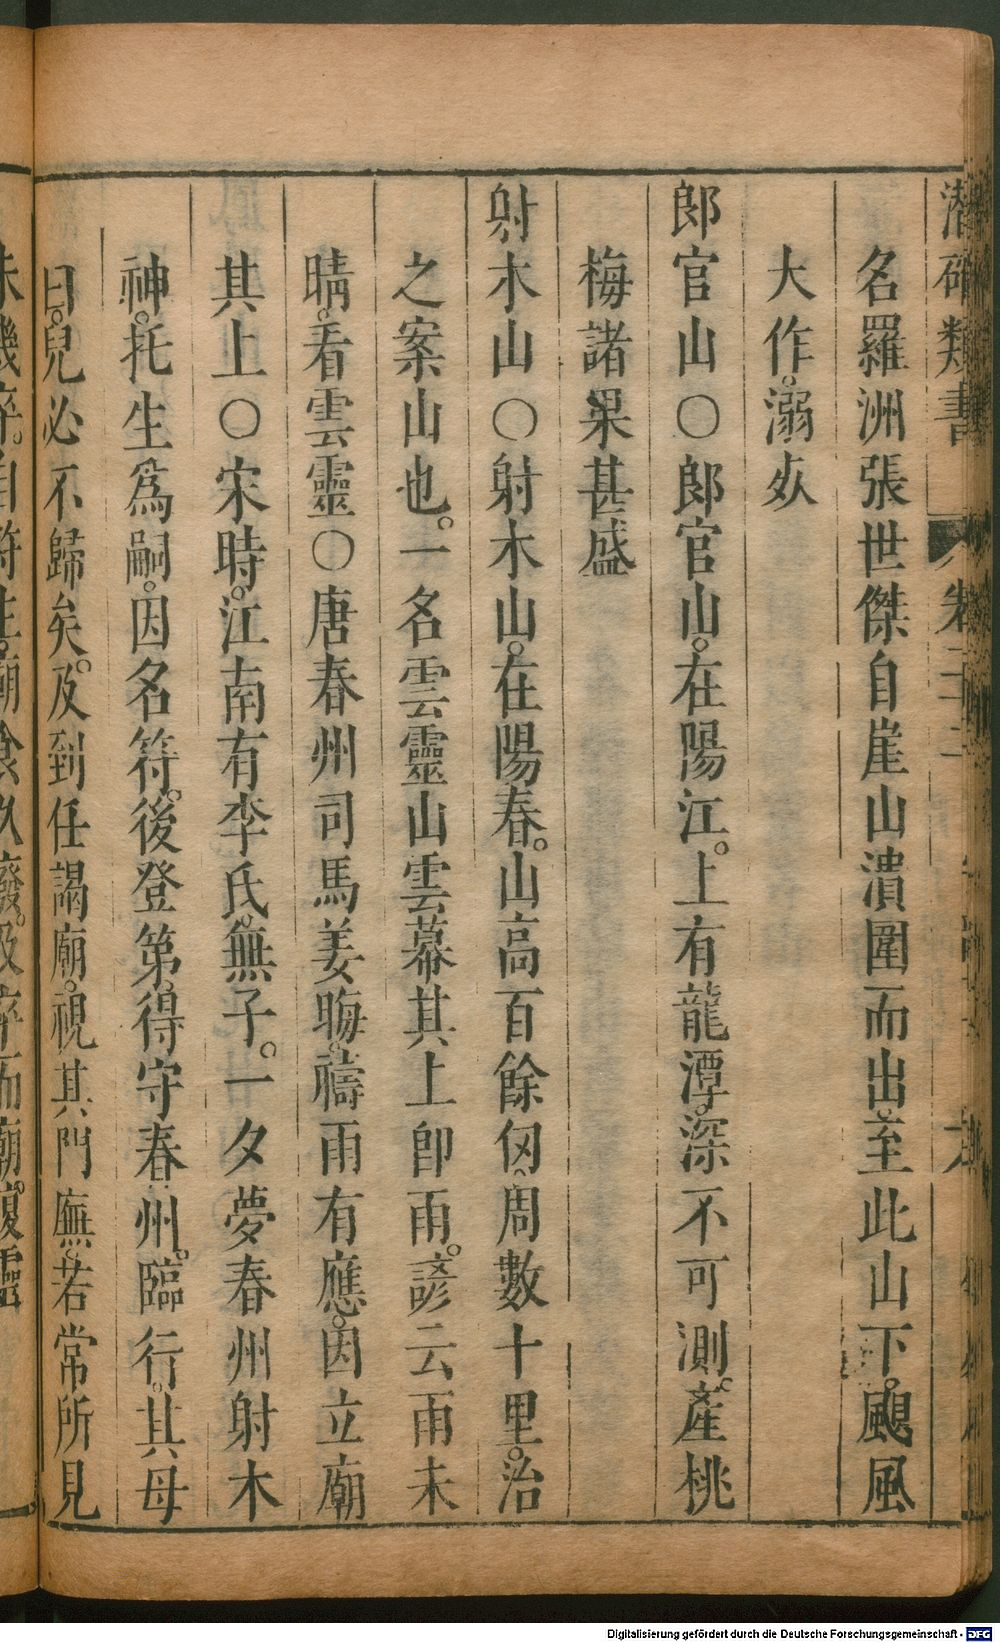 潛確類書 卷二十二
名羅洲張世傑自崖山潰圍而出。至此山下。颶風
大作。溺死
郎官山○郎官山。在陽江。上有龍潭。深不可測。產桃
梅諸果甚盛
射木山○射木山。在陽春。山高百餘仞。周數十里。治
之案山也。一名雲靈山雲幕其上卽雨。諺云雨未
晴。看雲靈○唐春州司馬姜晦。禱雨有應。因立廟
其上○宋時。江南有李氏。無子。一夕夢春州射木
神。托生爲嗣。因名符。後登第。得守春州。臨行。其母
曰。兒必不歸矣。及到任謁廟。視其門廡。若常所見
Digitalisierung gefördert durch die Deutsche Forschungsgemeinschaft - DFG